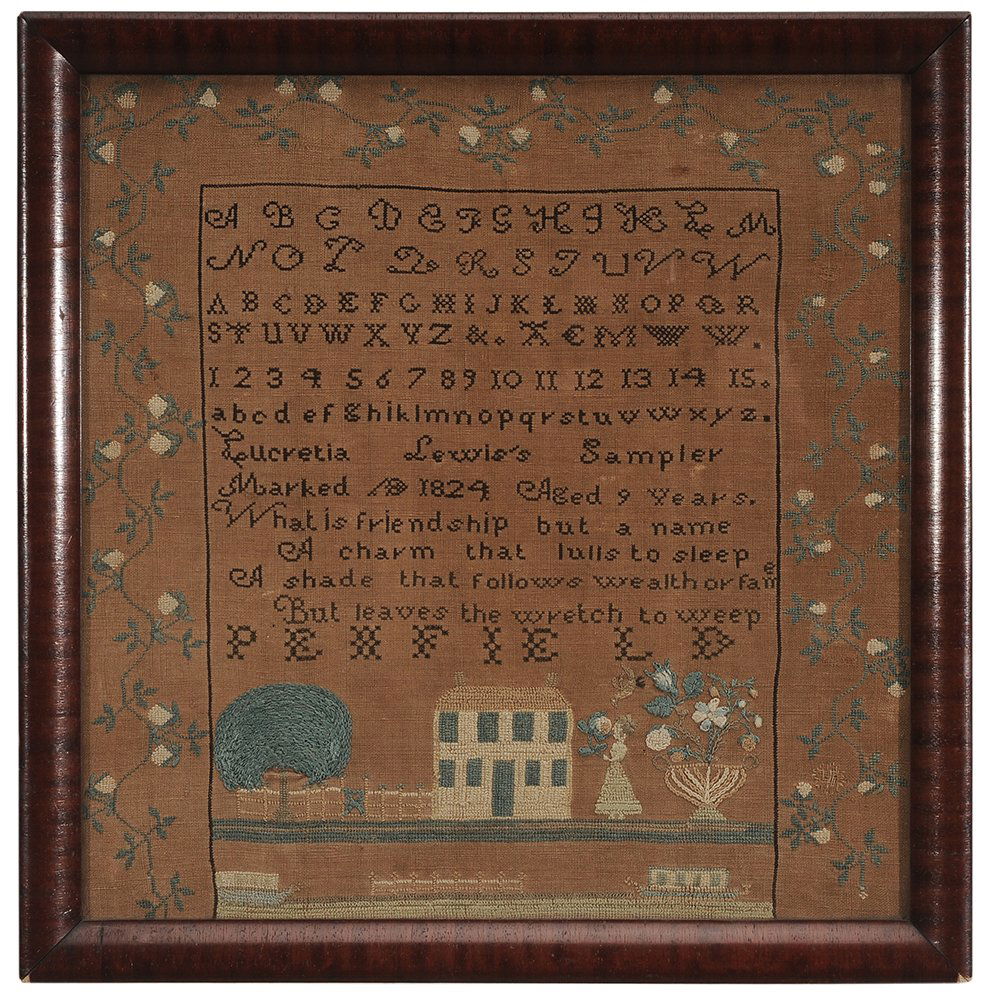 A B C D E F G H I K L M
N O P Q R S T U V W
A B C D E F G H I J K L M N O P Q R
S T U V W X Y Z &. A E M W W.
1 2 3 4 5 6 7 8 9 10 11 12 13 14 15.
a b c d e f g h i k l m n o p q r s t u v w x y z.
Lucretia Lewis's Sampler
Marked AD 1824 Aged 9 Years.
What is friendship but a name
A charm that lulls to sleep
A shade that follows wealth or fame
But leaves the wretch to weep
PENFIELD